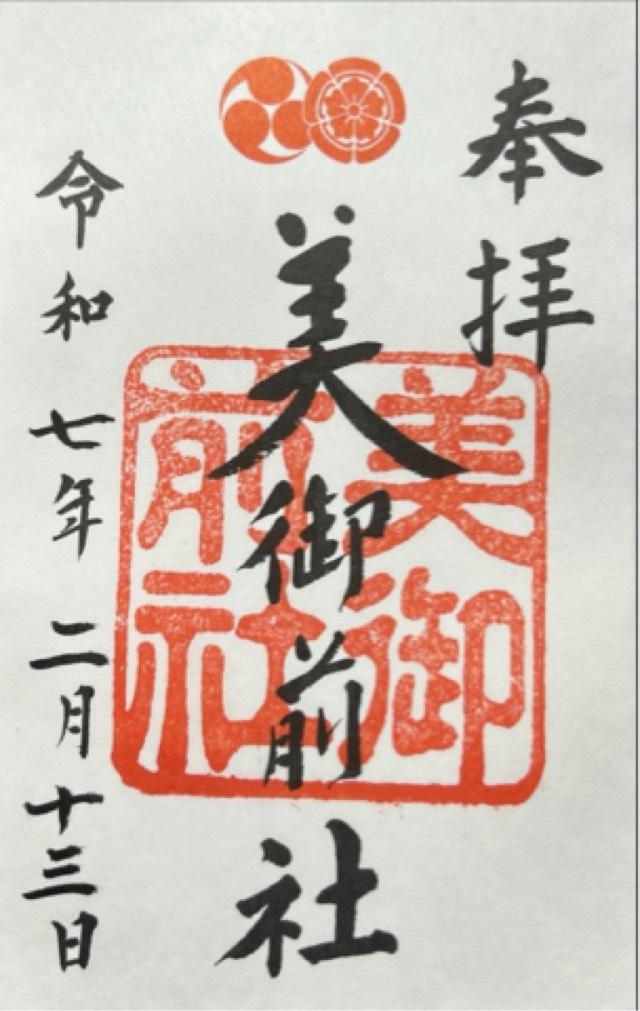 奉拝
美御前社
美御
前社
令和七年二月十三日